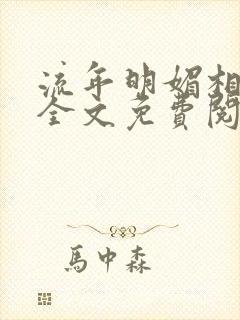 流年明媚相
全文免費閱
馬中森